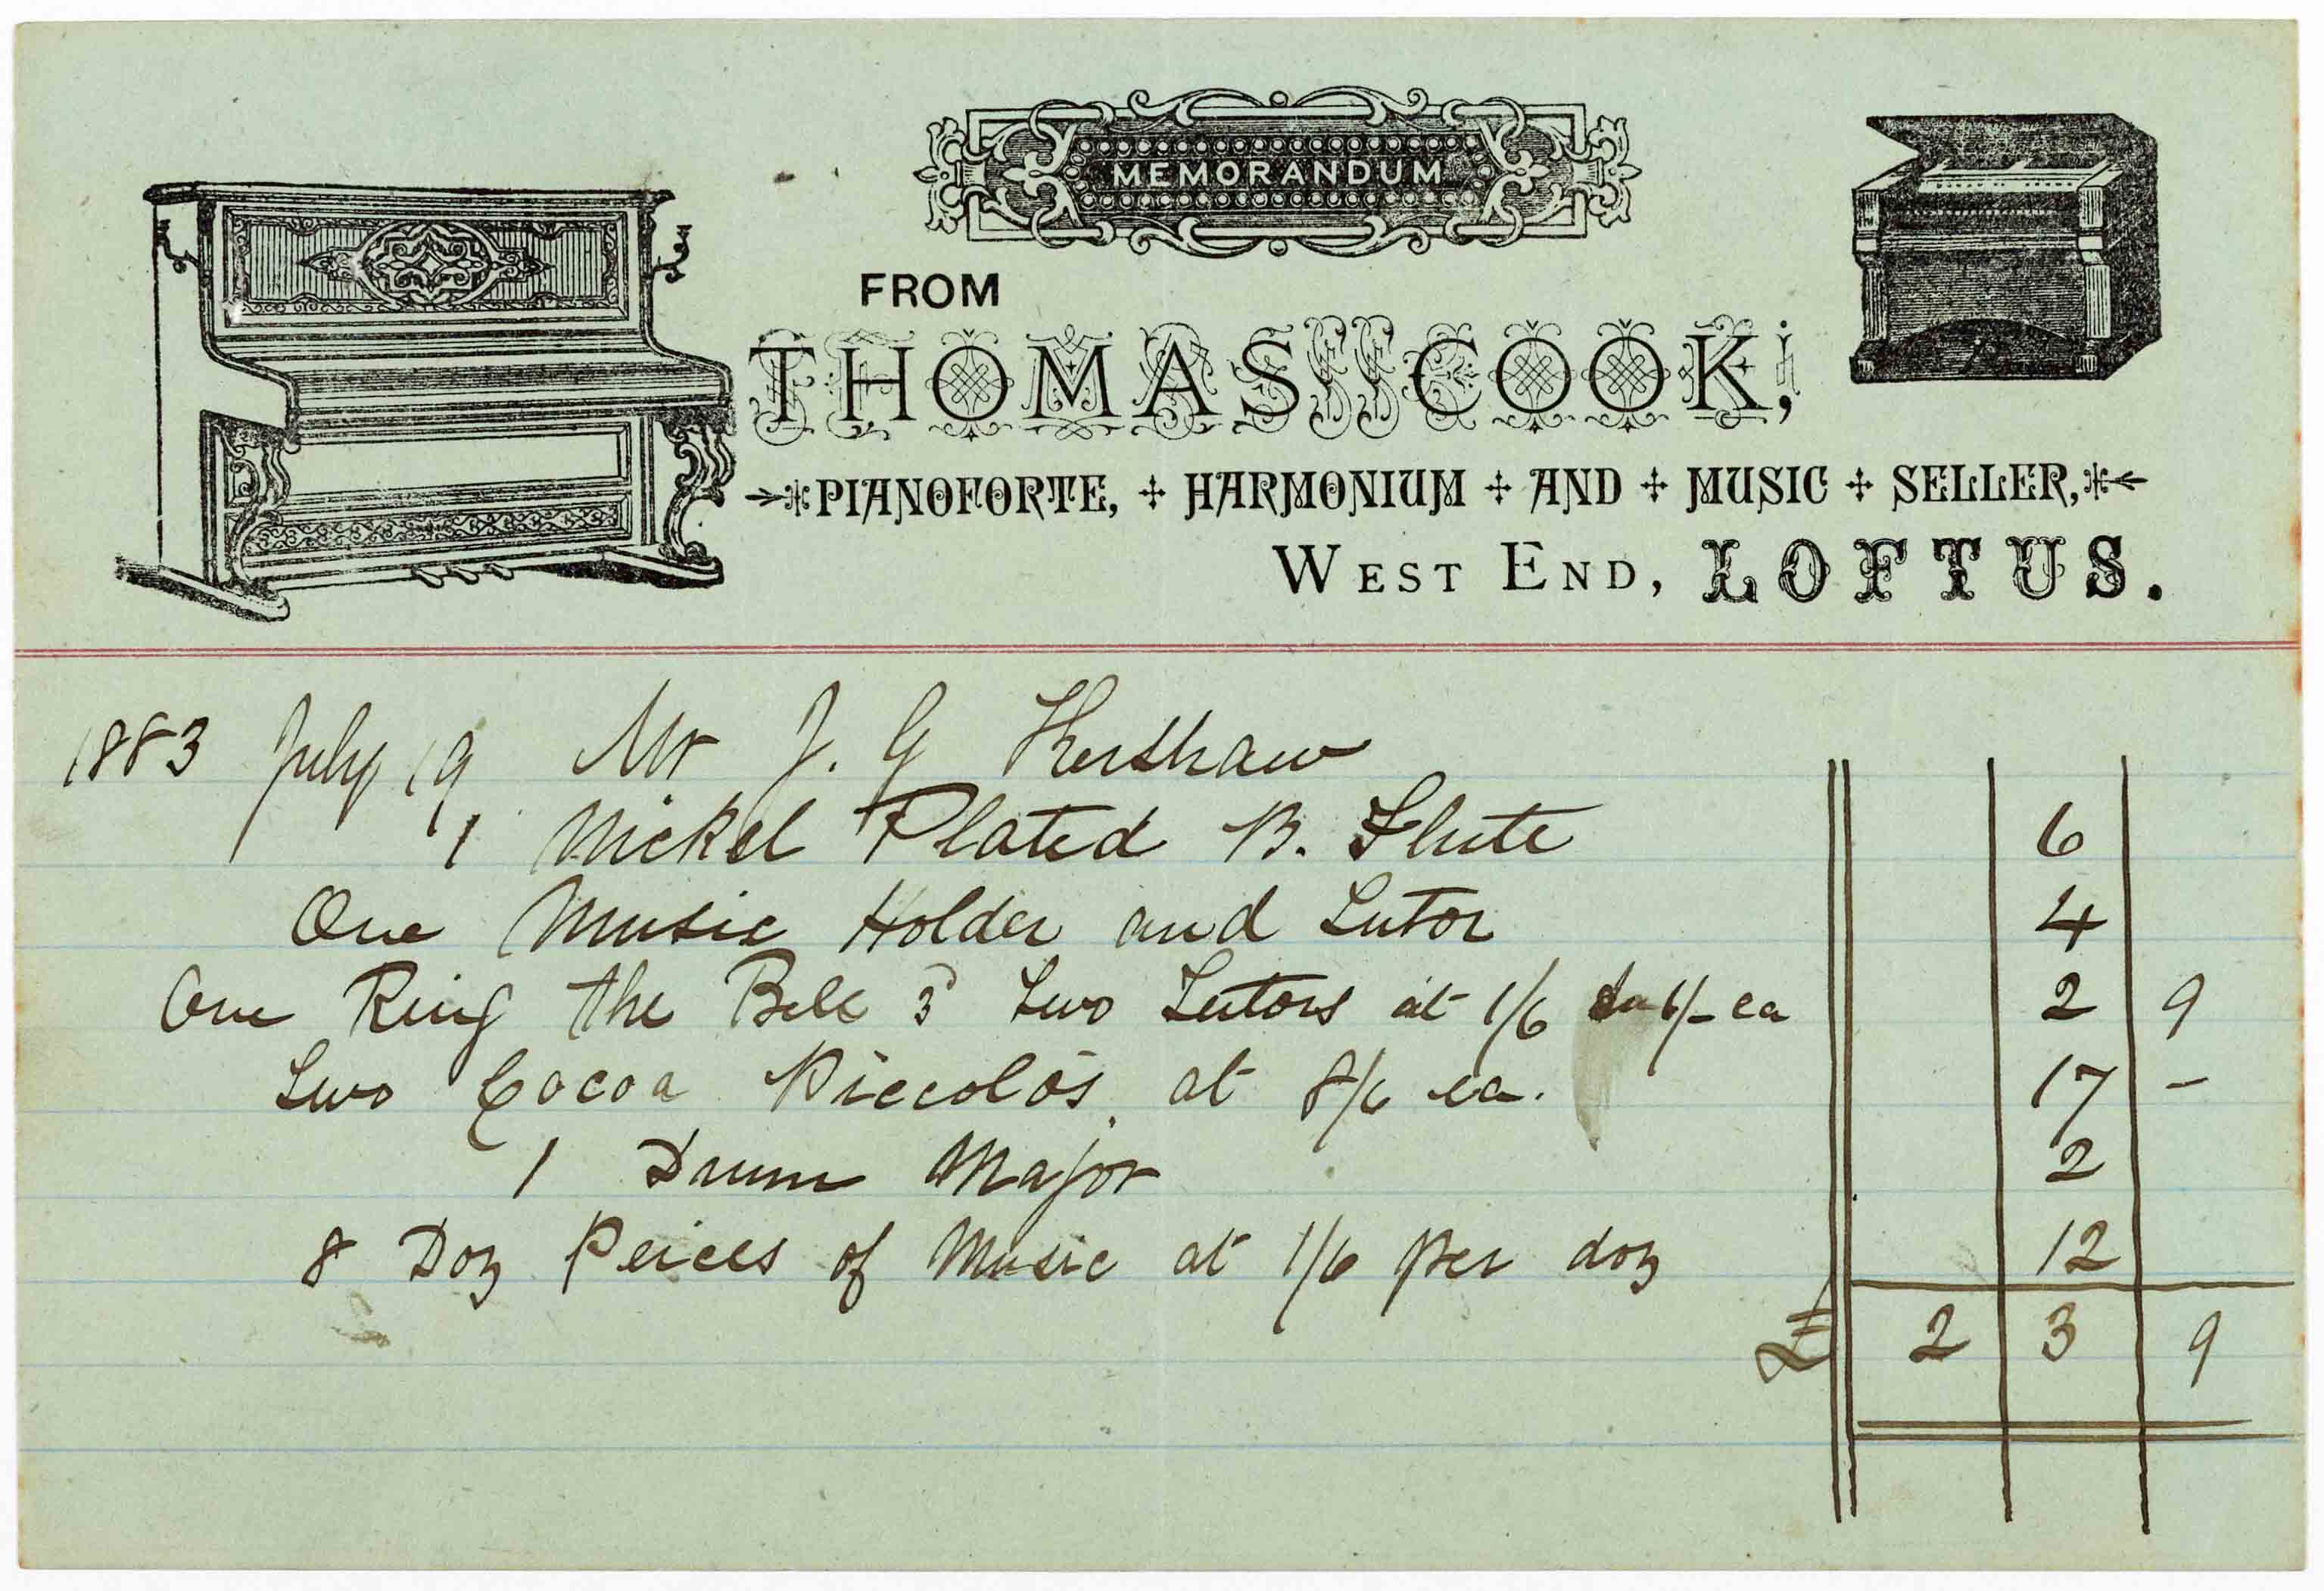 MEMORANDUM
FROM
THOMAS COOK,
PIANOFORTE, HARMONIUM AND MUSIC SELLER,
WEST END, LOFTUS.
1883 July 19 Mr J. G Kershaw
1 Nickel Plated B. Flute 6
One Music Holder and Tutor 4
One Ring the Bell 3d Two Tutors at 1/6 1/- ea 2 9
Two Cocoa Piccolos at 8/6 ea. 17 -
1 Drum Major 2
8 Doz Peices of Music at 1/6 per doz 12
£ 2 3 9